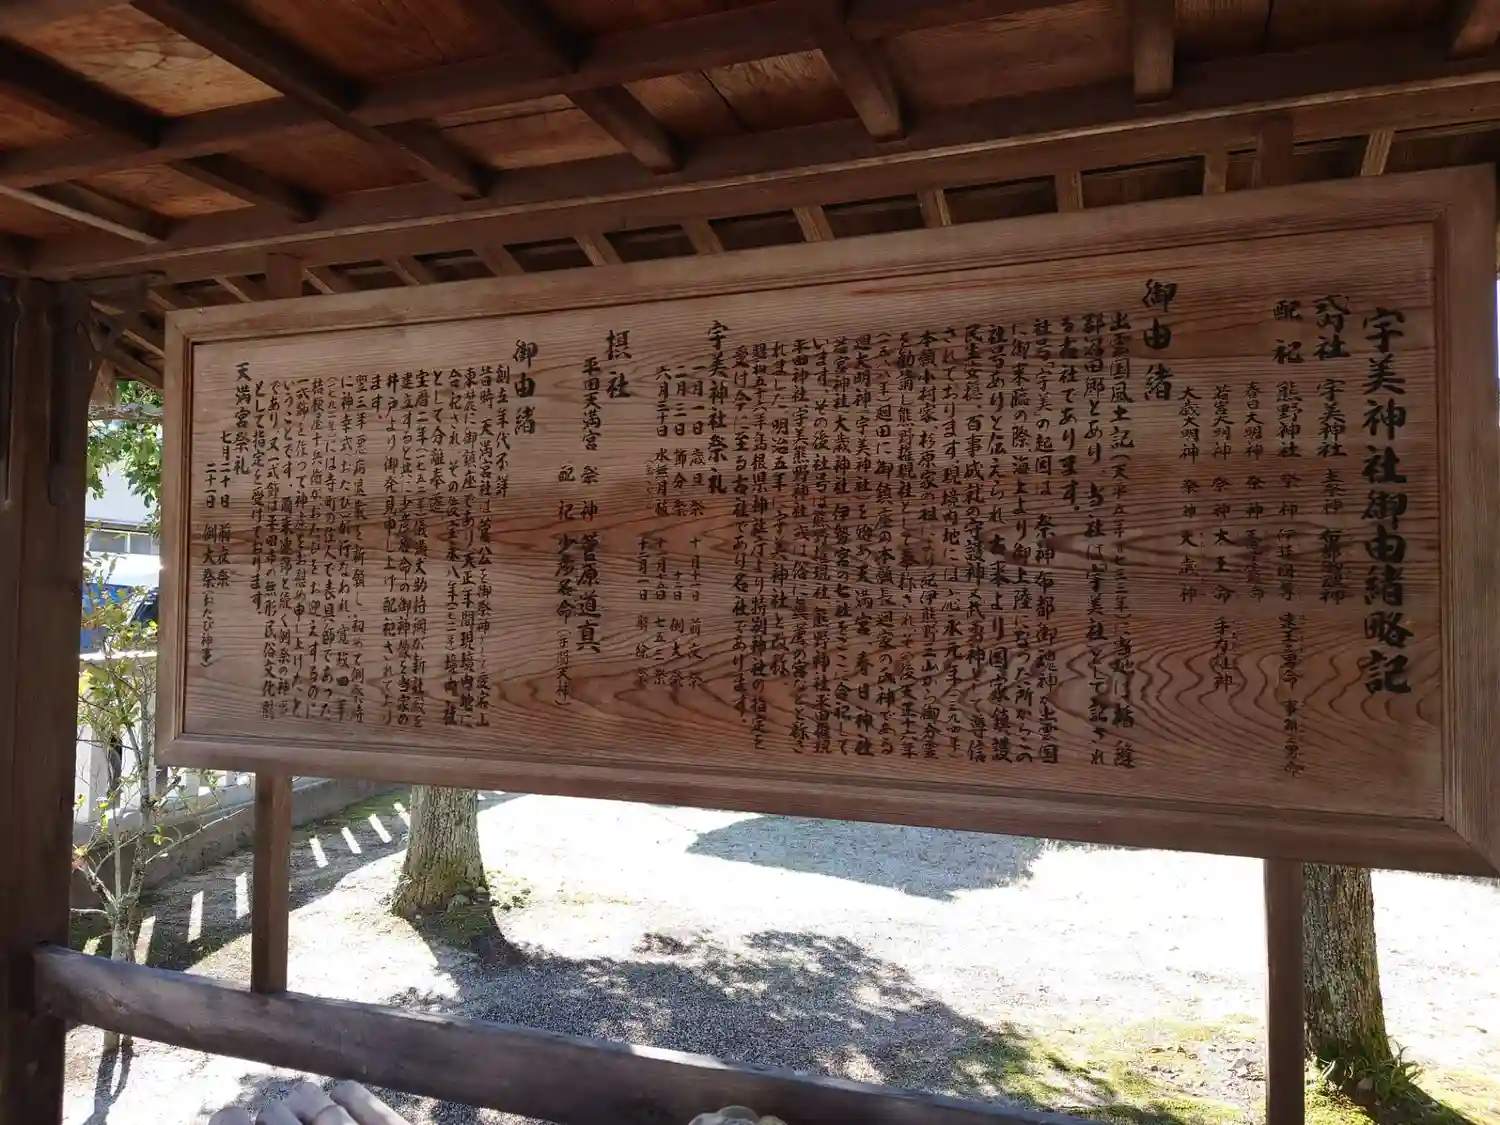 宇美神社御由緒略記
当社 宇美神社 主祭神 布都御魂神
配祀 熊野神社 祭神 伊弉冊尊 速玉之男命 事解之男命
春日大明神 祭神
若宮大明神 祭神 大王命 手力雄神
大歳大明神 祭神 大歳神
御由緒
出雲国風土記(天平五年七三三年)に当地は楯縫
郡沼田郷とあり 当社は「宇美社」として記され
る古社であります。
社号「宇美」の起因は、祭神布都御魂神が出雲国
に御来臨の際、海上より御上陸になった所からこの
社号ありと伝えられ 古来より国家鎮護
民生安穏 百事成社の守護神 又氏守神として尊信
されております 現境内地には応永元年(一三九四年)
本願小村家 杉原家の祖により紀伊熊野三山から御分霊
を勧請し熊野権現社として奉祀され その後天正十一年
(一五八三年)廻田に御鎮座の本願長廻家の氏神である
廻大明神(宇美神社)を始め天満宮 春日神社
若宮神社 大歳神社 伊勢宮の七社をここに合祀して
います。その後社号は熊野権現社 熊野神社 平田権現
平田神社 宇美熊野神社 或は俗に権現の宮などと称さ
れました 明治五年 宇美神社と改称
昭和五十六年島根県神社庁より特別神社の指定を
受け今に至る古社であり名社であります。
宇美神社祭礼
一月一日 歳旦祭 十月十一日 前夜祭
二月三日 節分祭 十二日 例大祭
六月三十日 水無月祓 十一月十五日 七五三祭
十二月一日
摂社
平田天満宮 祭神 菅原道真
配祀 少彦名命(手間天神)
御由緒
創立年代不詳
昔時、天満宮社は菅公を御祭神として愛宕山
東麓に御鎮座であり 天正年間現境内地に
合祀され、その後宝永八年(一七一一年)境内末社
として分離奉遷
宝暦二年(一七五二年)儀満大助持綱が新社殿を
建立すると共に少彦名命の御神像を当家の
井戸より御発見申し上げ配祀されており
ます
翌三年悪病退散を祈願し初めて例祭時
に神幸式(おたび)が行なわれ、寛政四年
(一七九二年)には寺町の住人で表具師であった
桔梗屋十兵衛がおたびをお迎えするのに
一式飾を作って神霊を慰め申し上げた、と
いうことです。爾来連綿と続く例祭の神事
であり、又一式飾は平田市の無形民俗文化財
として指定を受けております。
天満宮祭礼
七月二十日 前夜祭
二十一日 例大祭(おたび神事)